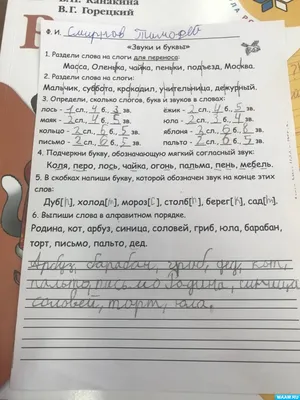 В.П. Канакина
В.Г. Горецкий
Ф. И. Смирнов Тимофей
«Звуки и буквы»
1. Раздели слова на слоги для переноса.
Масса, Оленька, чайка, пеньки, подъезд, Москва.
2. Раздели слова на слоги.
Мальчик, суббота, крокодил, учительница, дежурный.
3. Определи, сколько слогов, букв и звуков в словах:
лось - 1 сл. 4 б. 3 зв. ёжик - 2 сл. 4 б. 5 зв.
маяк - 2 сл. 4 б. 5 зв. юла - 2 сл. 3 б. 4 зв.
кольцо - 2 сл. 6 б. 5 зв. яблоня - 3 сл. 6 б. зв.
письмо - 2 сл. 6 б. 5 зв. пальто - 2 сл. 6 б. 5 зв.
4. Подчеркни букву, обозначающую мягкий согласный звук:
Коля, перо, лось, чайка, огонь, пальма, пень, мебель.
5. В скобках напиши букву, которой обозначен звук на конце этих
слов:
Дуб[ ], холод[ ], мороз[ ], столб[ ], берег[ ], сад[ ].
6. Выпиши слова в алфавитном порядке.
Родина, кот, арбуз, синица, соловей, гриб, юла, барабан,
торт, письмо, пальто, дед.
Арбуз, барабан, гриб, дед, кот,
пальто, письмо Родина, синица
соловей, торт, юла.
MAAM.RU